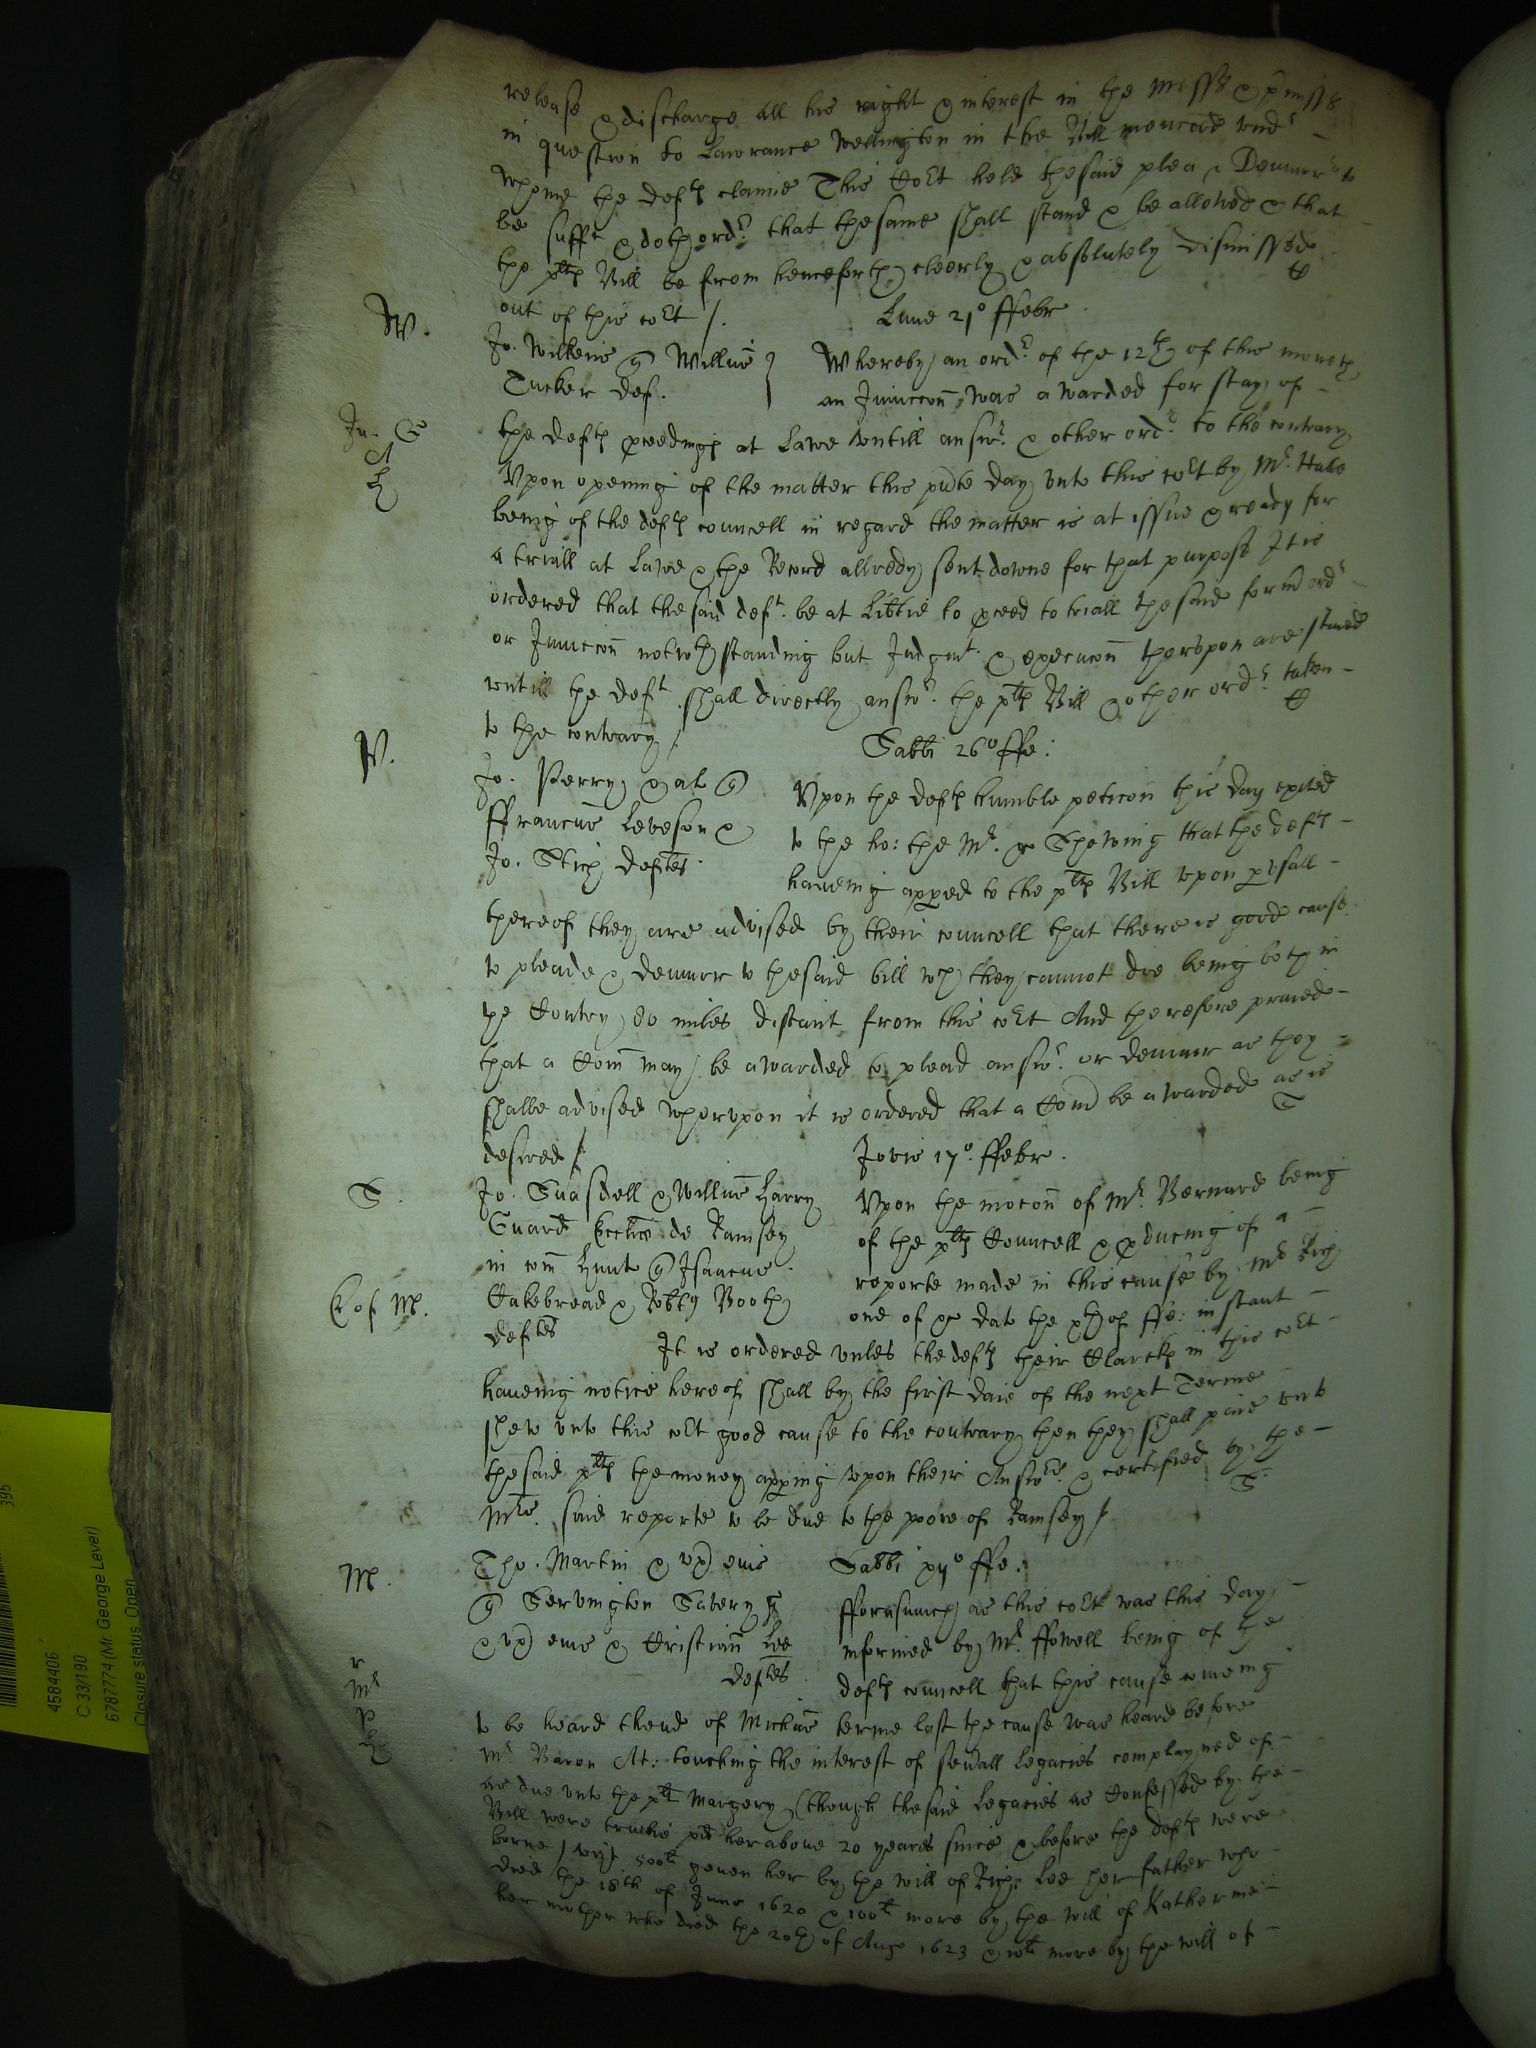 release & discharge all his right & interest in the mess & pmiss
in question to Lawrance Wellington in the Bill menconed undr
whome the deft clamie This Cort held the said plea & Demurr to
be sufft & doth ordr that the same shall stand & be allowed & that
the plts Bill be from henceforth cleerly & absolutely dismissed
out of this cort /.
W.
Lune 21o ffebr
Jo. Wilkens Willus
Tucker def.
Whereby an ordr of the 12th of this moneth
an Junccon was awarded for stay of
the defts pceedings at Lawe untill answr & other ordr to the contrary
Upon opening of the matter this pnte day unto this cort by Mr. Hale
being of the defts councell in regard the matter is at issue & ready for
a triall at Lawe & the Record allredy sent downe for that purpose It is
ordered that the said deft. be at Libtie to pceed to triall the said formr ordr
or Juncccon notwthstanding but Judgmt & execucon therupon are staied
untill the deft shall directly answr the plts Bill & other ordr taken
to the contrary /.
P.
Sabbi 26o ffe:
Jo. Perry & al
ffrancus Leveson &
Jo. Stich deftes.
Upon the defts humble peticon this day exited
to the ho: the Mr. Shewing that the defts
haveing apped to the plts Bill upon pusall
thereof they are advised by their councell that there is good cause
to pleade & demurr to the said bill wch they cannot doe being both in
the Contry 80 miles distant from this cort And therefore praied
that a Com may be awarded to plead answr or demurr as they
shalbe advised wherupon it is ordered that a Com be awarded as is
desired /
Jovis 17o. ffebr.
S.
Jo. Suasdell & Willus Harry
Guard Ecclie de Ramsey
in com Hunt Isaacus
Cakebread & Robtus Booth
deftes
Upon the mocon of Mr Bernard being
of the plts Councell & pducing of a
reporte made in this cause by Mr Rich
one of ye date the xth of ffe: instant
It is ordered unles the defts their Clarck in this cort
haveing notice hereof shall by the first daie of the next Terme
shew unto this cort good cause to the contrary then they shall paie unto
the said plts the money apping upon their Answrs & certified by the
Mrs. said reporte to be due to the poore of Ramsey /
R of M.
M.
Tho. Martin & ux eius
Servington Savery
& ux eius & Cristian Lee
deftes.
Sabbi xijo ffe:
fforasmuch as this cort was this day
informed by Mr. ffowell being of the
defts councell that this cause comeing
to be heard thend of Michas terme last the cause was heard before
Mr Baron At: touching the interest of sevall legacies complayned of
as due unto the plt Margery (though the said Legacies as Confessed by the
Bill were trulie pd her above 20 yeares since & before the defts were
borne / vizt 500li geven her by the will of Rich: Lee her father who
died the 18th of June 1620 & 100li more by the will of Katherine
her mother who died the 20th of Aug 1623 & 10li more by the will of
395
4584406
C 33/190
6787774 (Mr. George Lever)
Closure status: Open